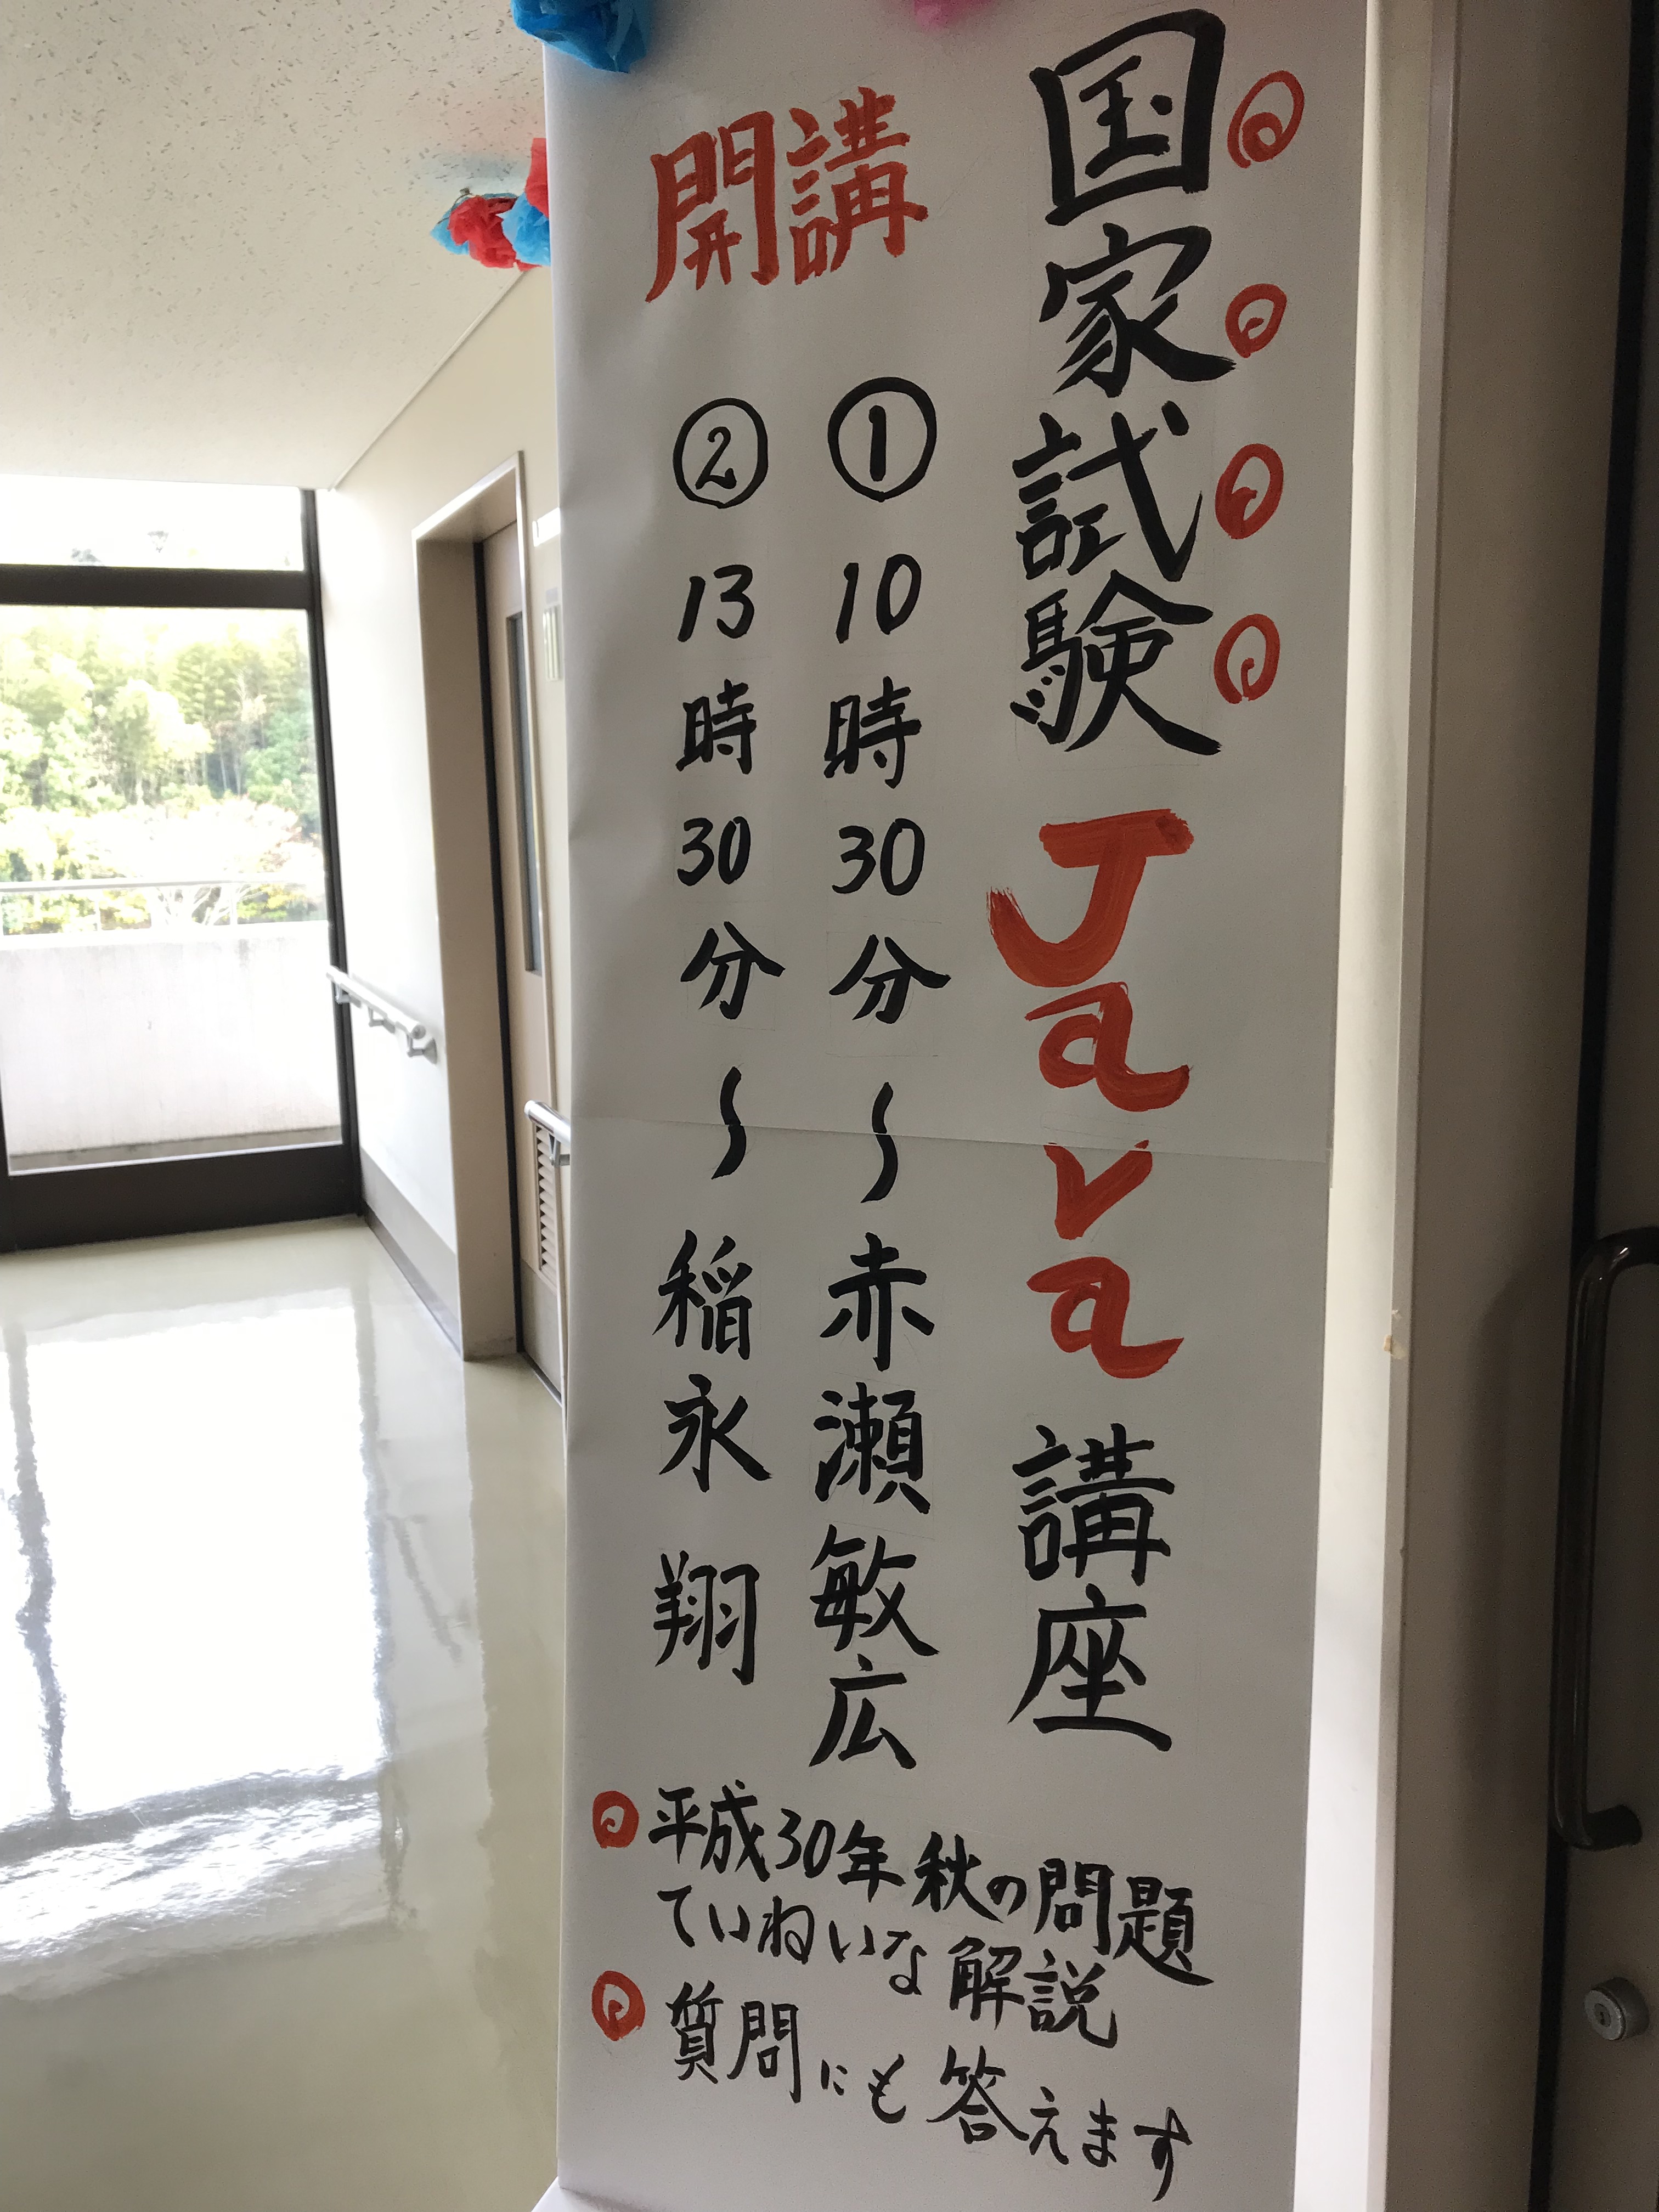 国家試験 Java 講座
開講
① 10時30分〜 赤瀬敏広
② 13時30分〜 稲永 翔
平成30年秋の問題
ていねいな解説
質問にも答えます